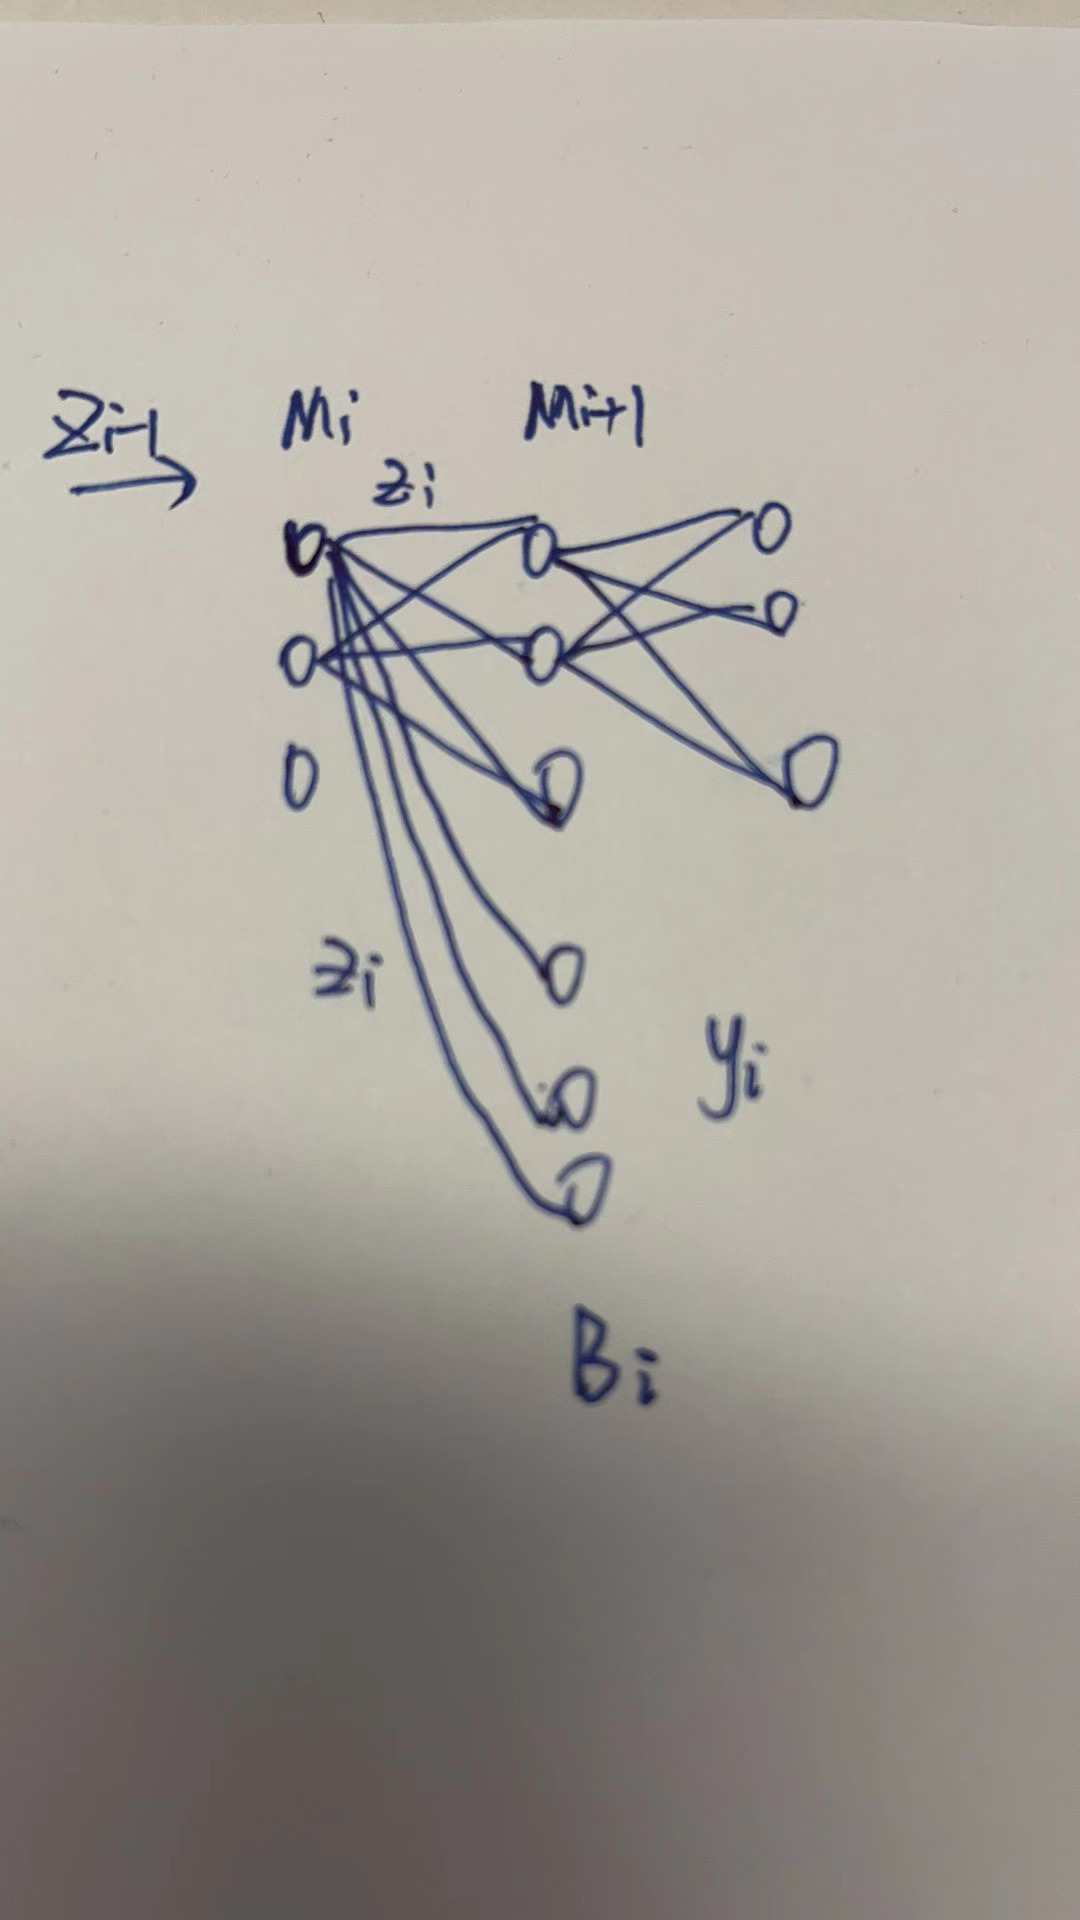 Zi-1 Mi Mi+1
zi
zi
yi
Bi